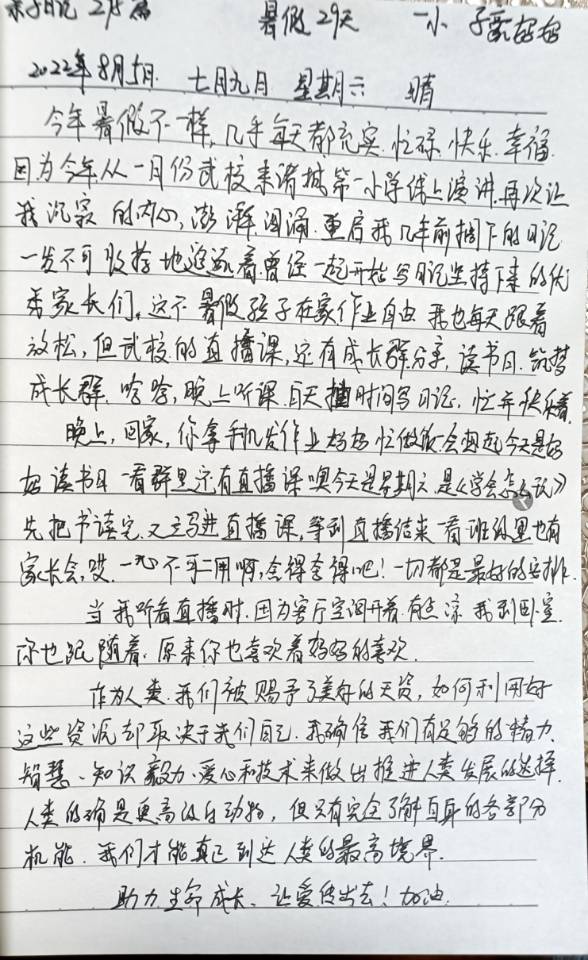 亲子日记 215篇 暑假29天 一小 子豪妈妈
2022年8月5日. 七月九月 星期六 晴
今年暑假不一样,几乎每天都充实.忙碌.快乐.幸福.
因为今年从一月份武校来诸城第一小学线上演讲.再次让
我沉寂的内心,澎湃汹涌.重启我几年前搁下的日记
一发不可收拾地追逐着.曾经一起开始写日记坚持下来的优
秀家长们。这个暑假孩子在家.作业自由.我也每天跟着
放松,但武校的直播课,还有成长群分享,读书日.筑梦
成长群.哈哈,晚上听课.白天抽时间写日记,忙并快乐着.
晚上,回家,你拿手机发作业妈妈忙做饭.会想起今天是妈
妈读书日.一看群里还有直播课噢今天是星期六.是《学会怎么玩》
先把书读完.又立马进直播课,等到直播结束一看班级里也有
家长会,哎.一心不可二用啊,舍得舍得吧!一切都是最好的安排.
当我听着直播时.因为客厅空调开着.有点凉.我到卧室.
你也跟随着.原来你也喜欢着妈妈的喜欢.
作为人类.我们被赐予了美好的天资,如何利用好
这些资源却取决于我们自己.我确信我们有足够的精力.
智慧.知识.毅力.爱心和技术来做出推进人类发展的选择.
人类的确是更高级的动物,但只有完全了解自身的各部分
机能.我们才能真正到达人类的最高境界.
助力生命成长、让爱传出去!加油.